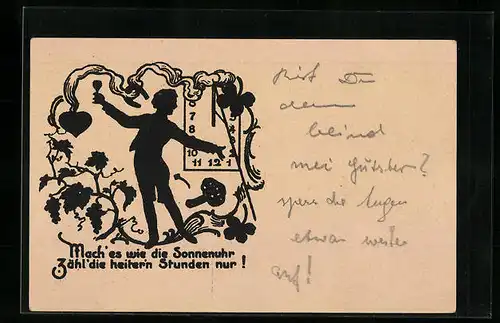 6
7 5
8 4
9 3
10 2
11 12 1
Mach'es wie die Sonnenuhr
Zähl'die heiter'n Stunden nur !
Bist Du
denn
blind
mei
die Augen
etwas weiter
auf!